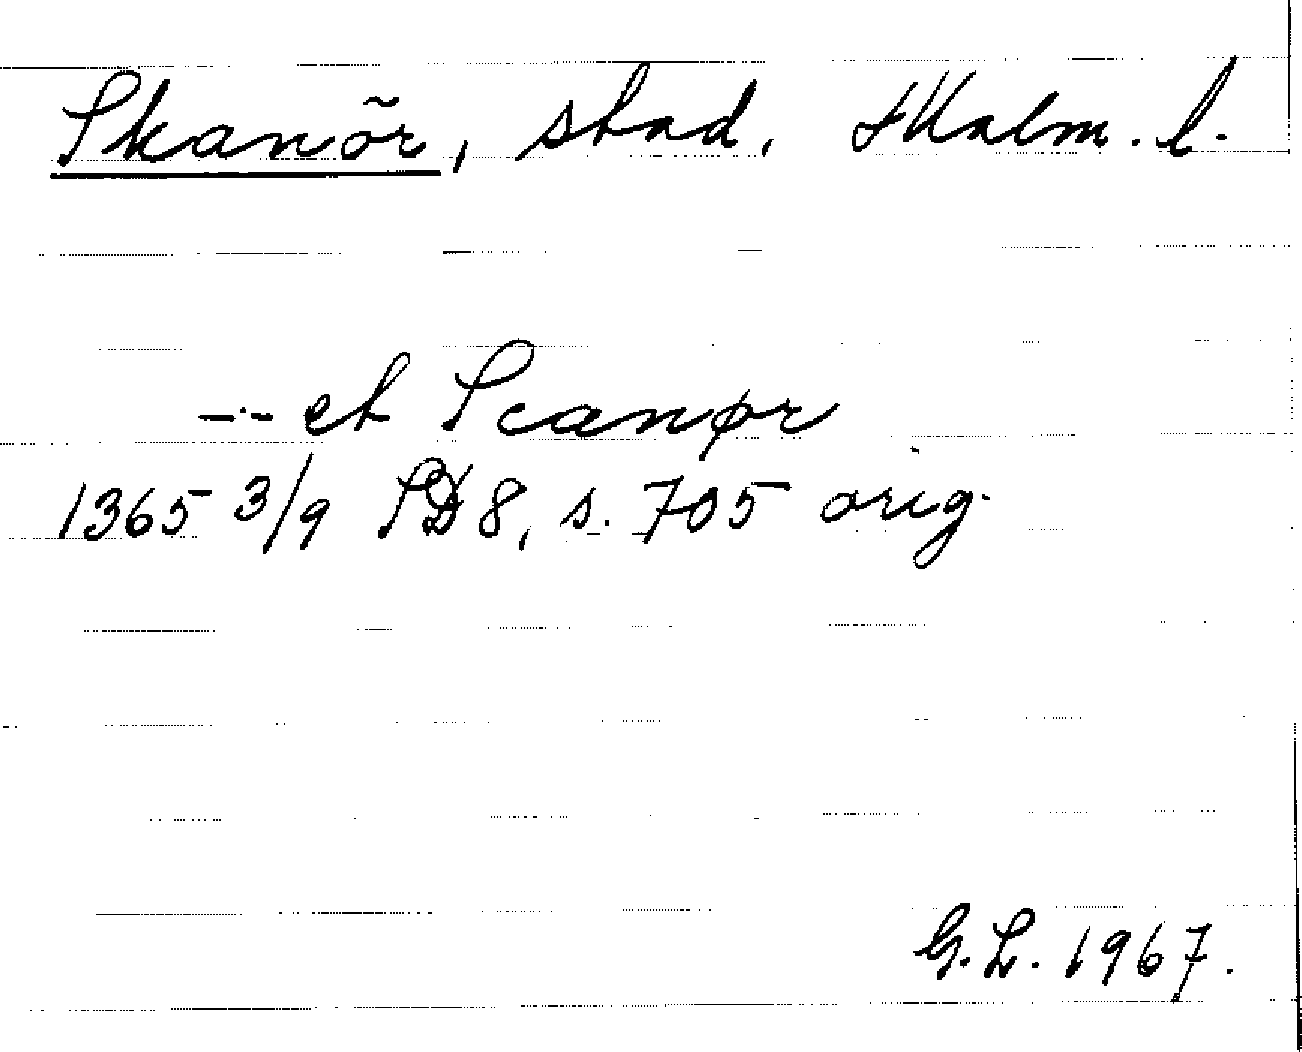 Skanör, stad, Malm. l.
--- et Scanør
1365 3/9 SD 8, s. 705 orig.
G.L. 1967.